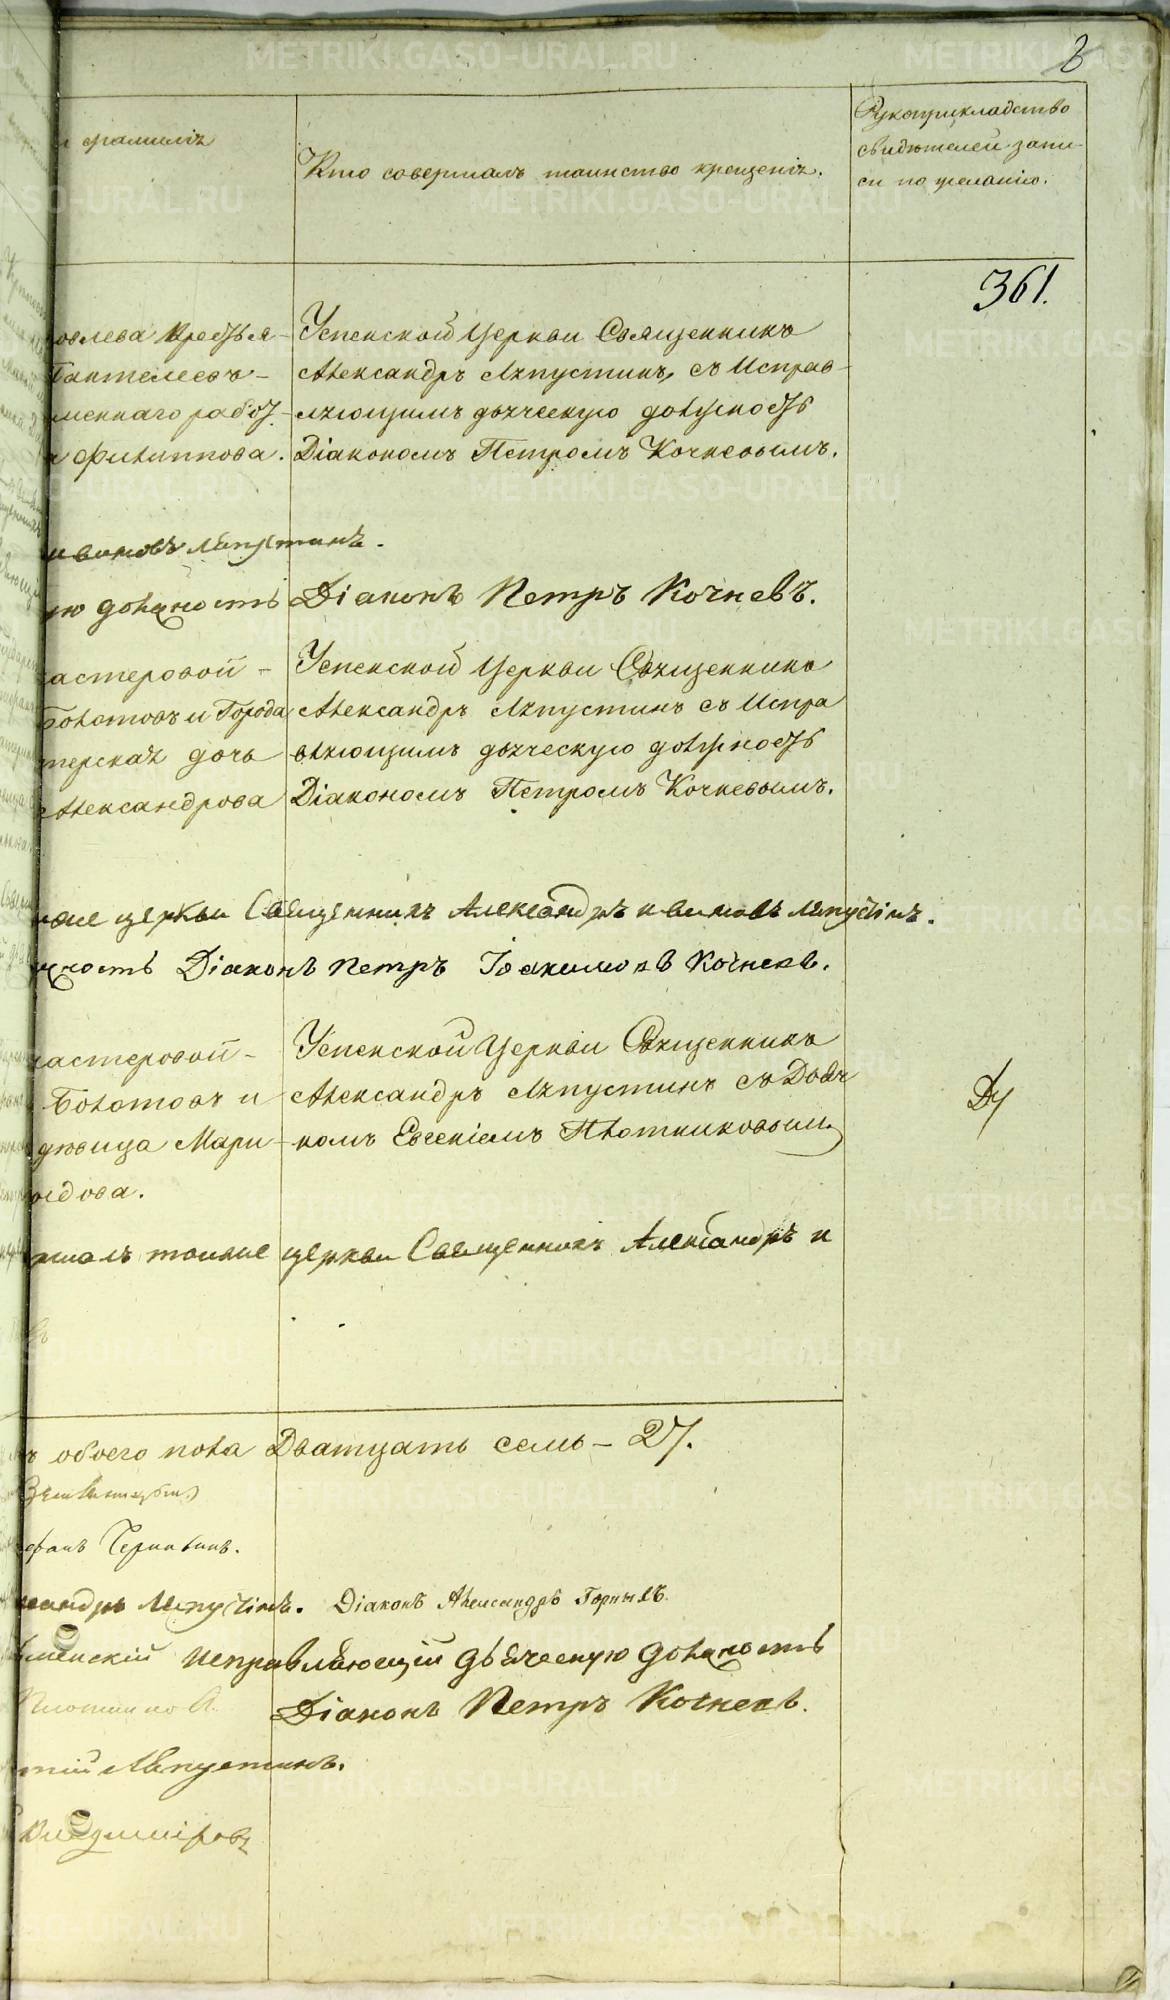 8
и фамилія
Кто совершалъ таинство крещенія.
Рукоприкладство
свидѣтелей запи-
си по желанію.
361.
овлева Крестья-
Пантелеевъ-
менного работ.
Филиппова.
Успенской Церкви Священникъ
Александръ Ляпустинъ, съ Исправ-
ляющимъ дьяческую должность
Діакономъ Петромъ Кочневымъ.
ивановъ Ляпустинъ.
ую должность Діаконъ Петръ Кочневъ.
астеровой-
Болотовъ и Города
терская дочь
Александрова
Успенской Церкви Священникъ
Александръ Ляпустинъ съ Испра
вляющимъ дьяческую должность
Діакономъ Петромъ Кочневымъ.
церкви Священникъ Александръ ивановъ Ляпустинъ.
жность Діаконъ Петръ Іоакимовъ Кочневъ.
мастеровой-
Болотовъ и
дѣвица Мари-
Успенской Церкви Священникъ
Александръ Ляпустинъ съ Дьяч
комъ Евгеніемъ Плотниковым.
шалъ тоиже церкви Священникъ Александръ и
обоего пола Дватцать семь - 27.
Діаконъ Александръ Горныхъ
сандръ Ляпустинъ.
менскій исправляющій дьяческую должность
Діаконъ Петръ Кочневъ.
тій Ляпустинъ.
METRIKI.GASO-URAL.RU